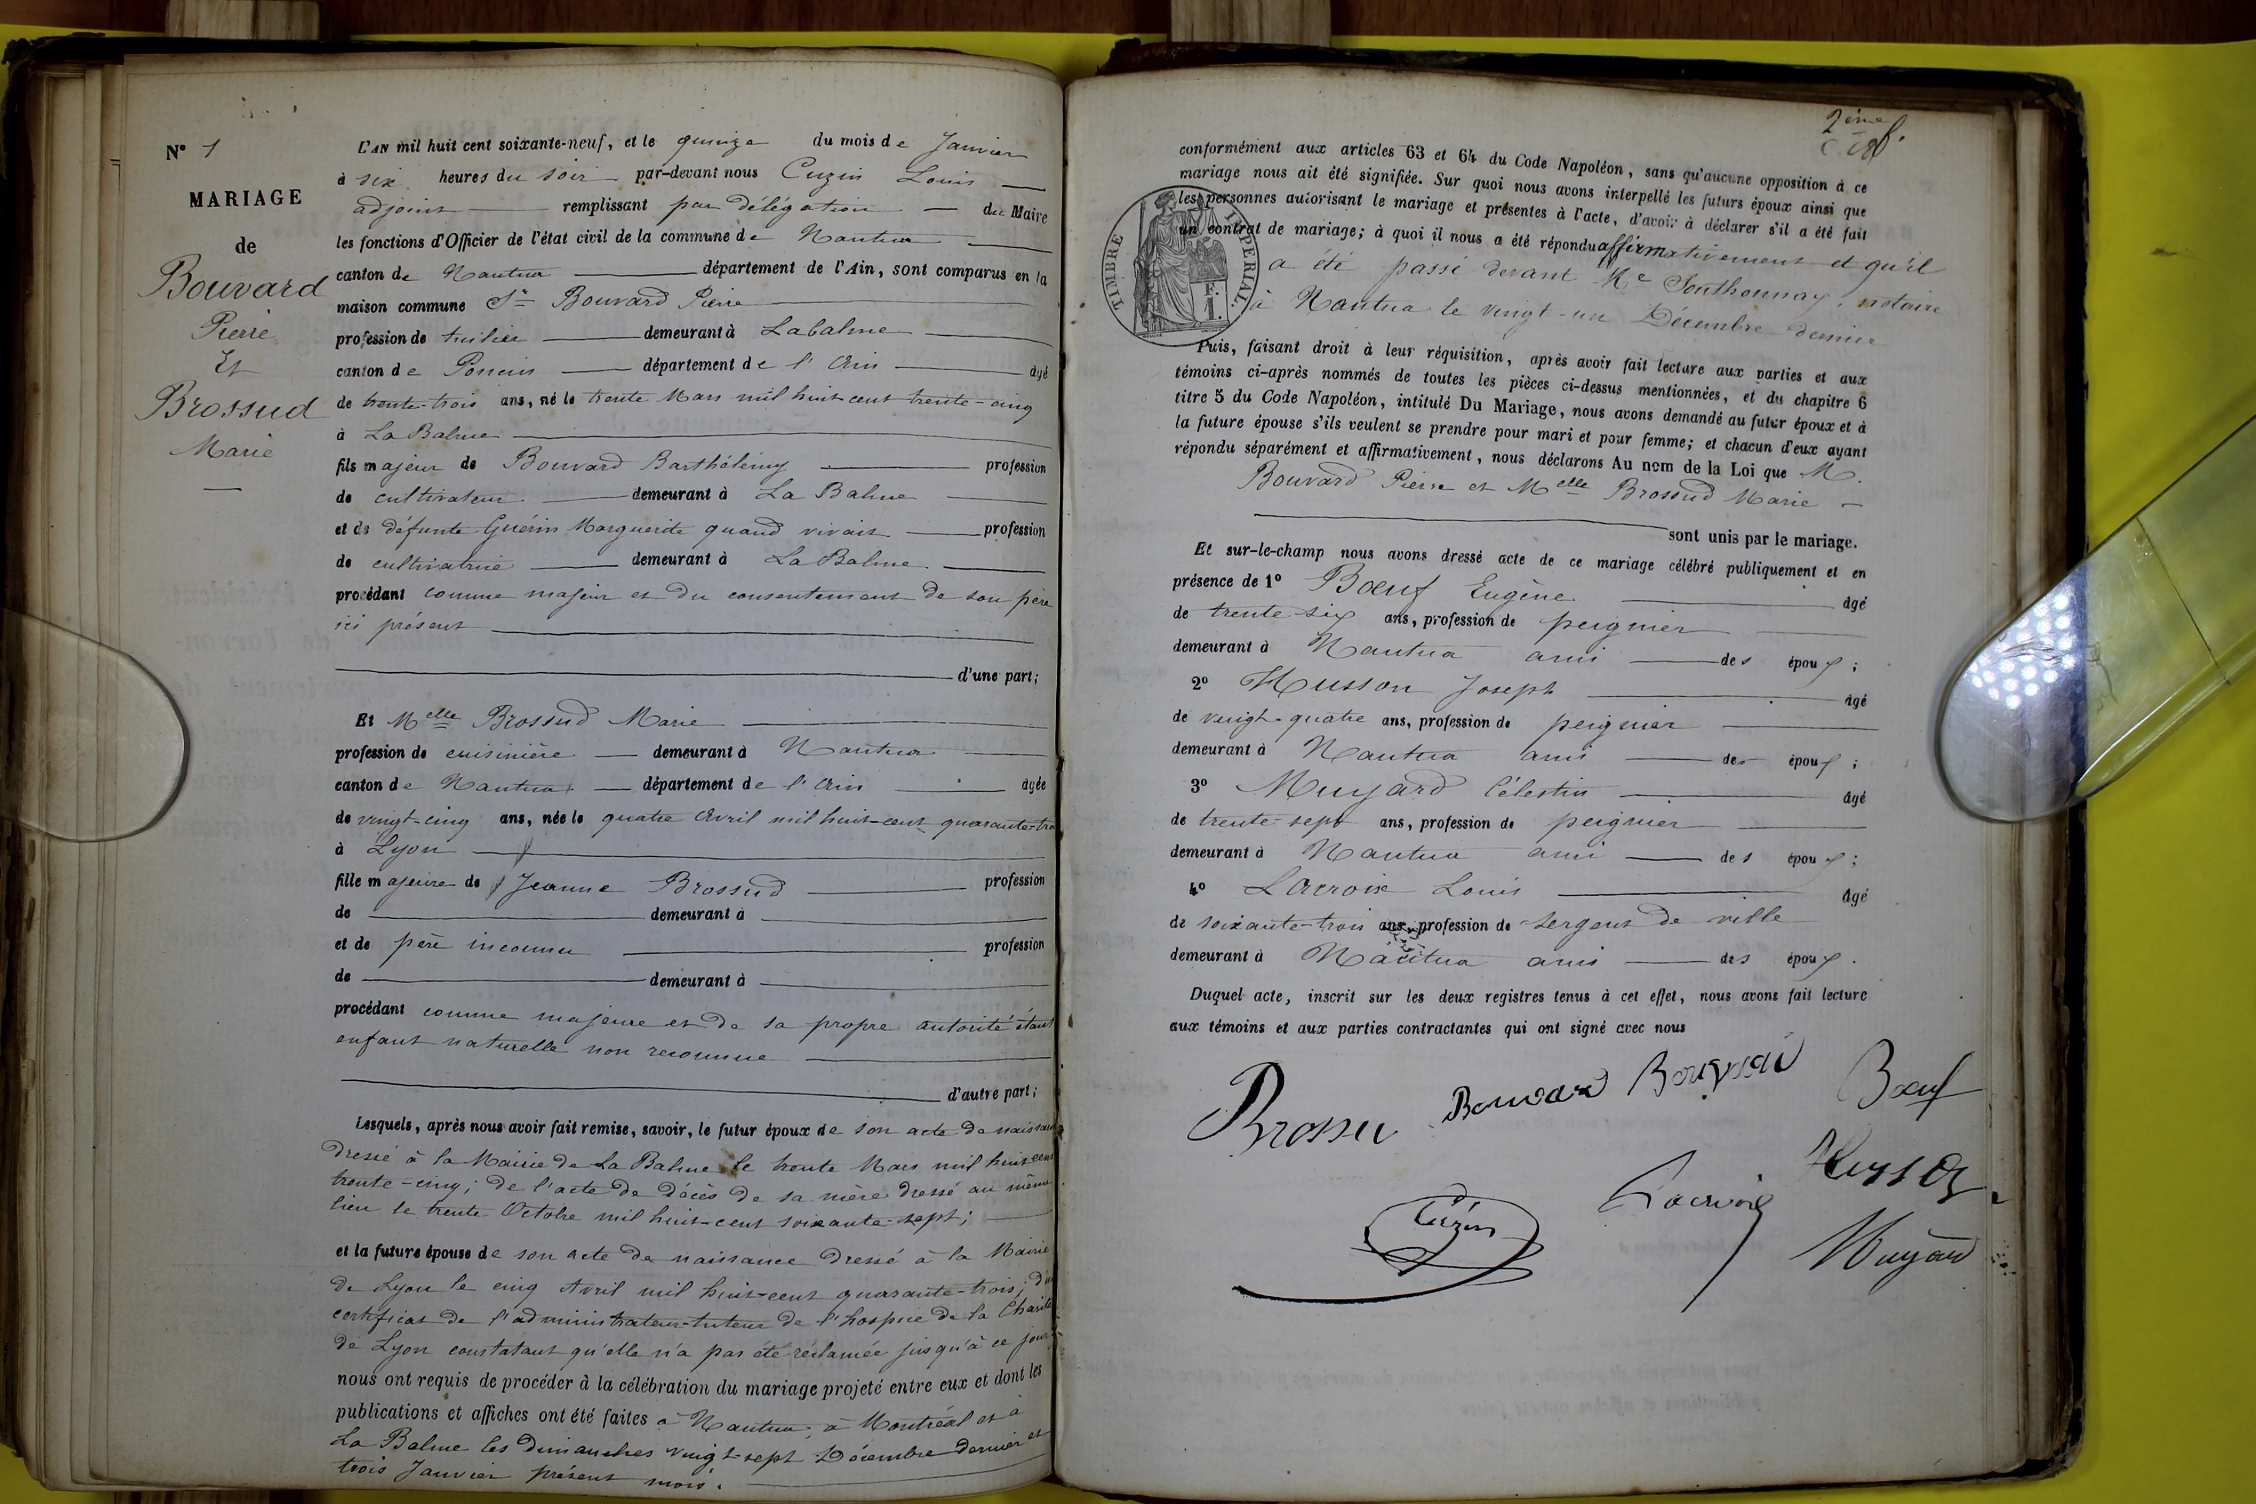 N° 1
MARIAGE
de
Bouvard
Pierre
Et
Brossud
Marie
L'AN mil huit cent soixante-neuf, et le quinze du mois de Janvier
à six heures du soir par-devant nous Cuzin Louis
adjoint remplissant par délégation du Maire
les fonctions d'Officier de l'état civil de la commune de Nantua
canton de Nantua département de l'Ain, sont comparus en la
maison commune Sr Bouvard Pierre
profession de tuilier demeurant à Labalme
canton de Poncin département de l'Ain âgé
de trente-trois ans, né le trente Mars mil huit cent trente-cinq
à La Balme
fils majeur de Bouvard Barthélémy profession
de cultivateur demeurant à La Balme
et de défunte Guérin Marguerite quand vivait profession
de cultivatrice demeurant à La Balme
procédant comme majeur et du consentement de son père
ici présent
d'une part;
Et Melle Brossud Marie
profession de cuisinière demeurant à Nantua
canton de Nantua département de l'Ain âgée
de vingt-cinq ans, née le quatre Avril mil huit-cent quarante-tro
à Lyon
fille majeure de Jeanne Brossud profession
de demeurant à
et de père inconnu profession
de demeurant à
procédant comme majeure et de sa propre autorité étant
enfant naturelle non reconnue
d'autre part;
Lesquels, après nous avoir fait remise, savoir, le futur époux de son acte de naissance
dressé à la Mairie de La Balme le trente Mars mil huit cent
trente-cinq; de l'acte de décès de sa mère dressé au même
lieu le trente Octobre mil huit-cent soixante-sept;
et la future épouse de son acte de naissance dressé à la Mairie
de Lyon le cinq Avril mil huit-cent quarante-trois; d'un
certificat de l'administrateur-tuteur de l'hospice de la Charité
de Lyon constatant qu'elle n'a pas été réclamée jusqu'à ce jour
nous ont requis de procéder à la célébration du mariage projeté entre eux et dont les
publications et affiches ont été faites à Nantua, à Montréal et à
La Balme les dimanches vingt-sept Décembre dernier et
trois Janvier présent mois.
2ème
conformément aux articles 63 et 64 du Code Napoléon, sans qu'aucune opposition à ce
mariage nous ait été signifiée. Sur quoi nous avons interpellé les futurs époux ainsi que
les personnes autorisant le mariage et présentes à l'acte, d'avoir à déclarer s'il a été fait
un contrat de mariage; à quoi il nous a été répondu affirmativement et qu'il
a été passé devant Me Southonnay, notaire
à Nantua le vingt-un Décembre dernier
TIMBRE IMPERIAL
F.
1.
Puis, faisant droit à leur réquisition, après avoir fait lecture aux parties et aux
témoins ci-après nommés de toutes les pièces ci-dessus mentionnées, et du chapitre 6
titre 5 du Code Napoléon, intitulé Du Mariage, nous avons demandé au futur époux et à
la future épouse s'ils veulent se prendre pour mari et pour femme; et chacun d'eux ayant
répondu séparément et affirmativement, nous déclarons Au nom de la Loi que M.
Bouvard Pierre et Melle Brossud Marie
sont unis par le mariage.
Et sur-le-champ nous avons dressé acte de ce mariage célébré publiquement et en
présence de 1° Bœuf Eugène âgé
de trente-six ans, profession de peignier
demeurant à Nantua ami des époux;
2° Husson Joseph âgé
de vingt-quatre ans, profession de peignier
demeurant à Nantua ami des époux;
3° Muyard Célestin âgé
de trente-sept ans, profession de peignier
demeurant à Nantua ami des époux;
4° Lacroix Louis âgé
de soixante-trois ans, profession de sergent de ville
demeurant à Nantua ami des époux.
Duquel acte, inscrit sur les deux registres tenus à cet effet, nous avons fait lecture
aux témoins et aux parties contractantes qui ont signé avec nous
Brossu Bouvard Bouvard Bœuf
Husson
Cuzin Lacroix
Muyard